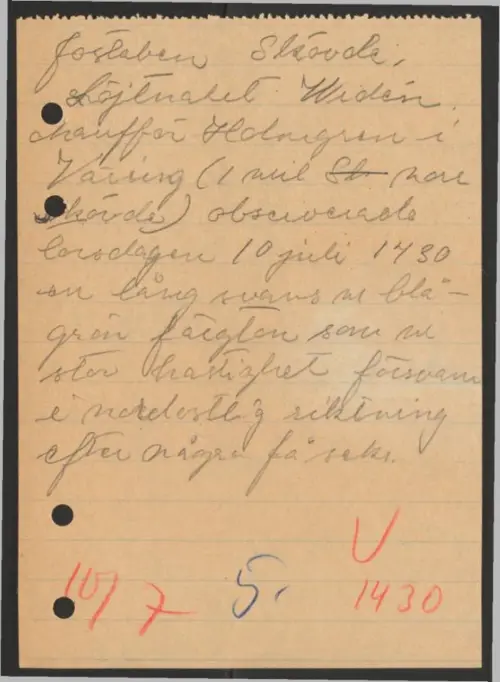 föstaben Skövde,
Löjtnant Widén.
chaufför Holmgren i
Väring (1 mil St norr
Skövde) observerade
torsdagen 10 juli 1430
en lång svans m blå-
grön färgton som m
stor hastighet försvann
i nordostlig riktning
efter några få sek.
V
10/7 5. 1430